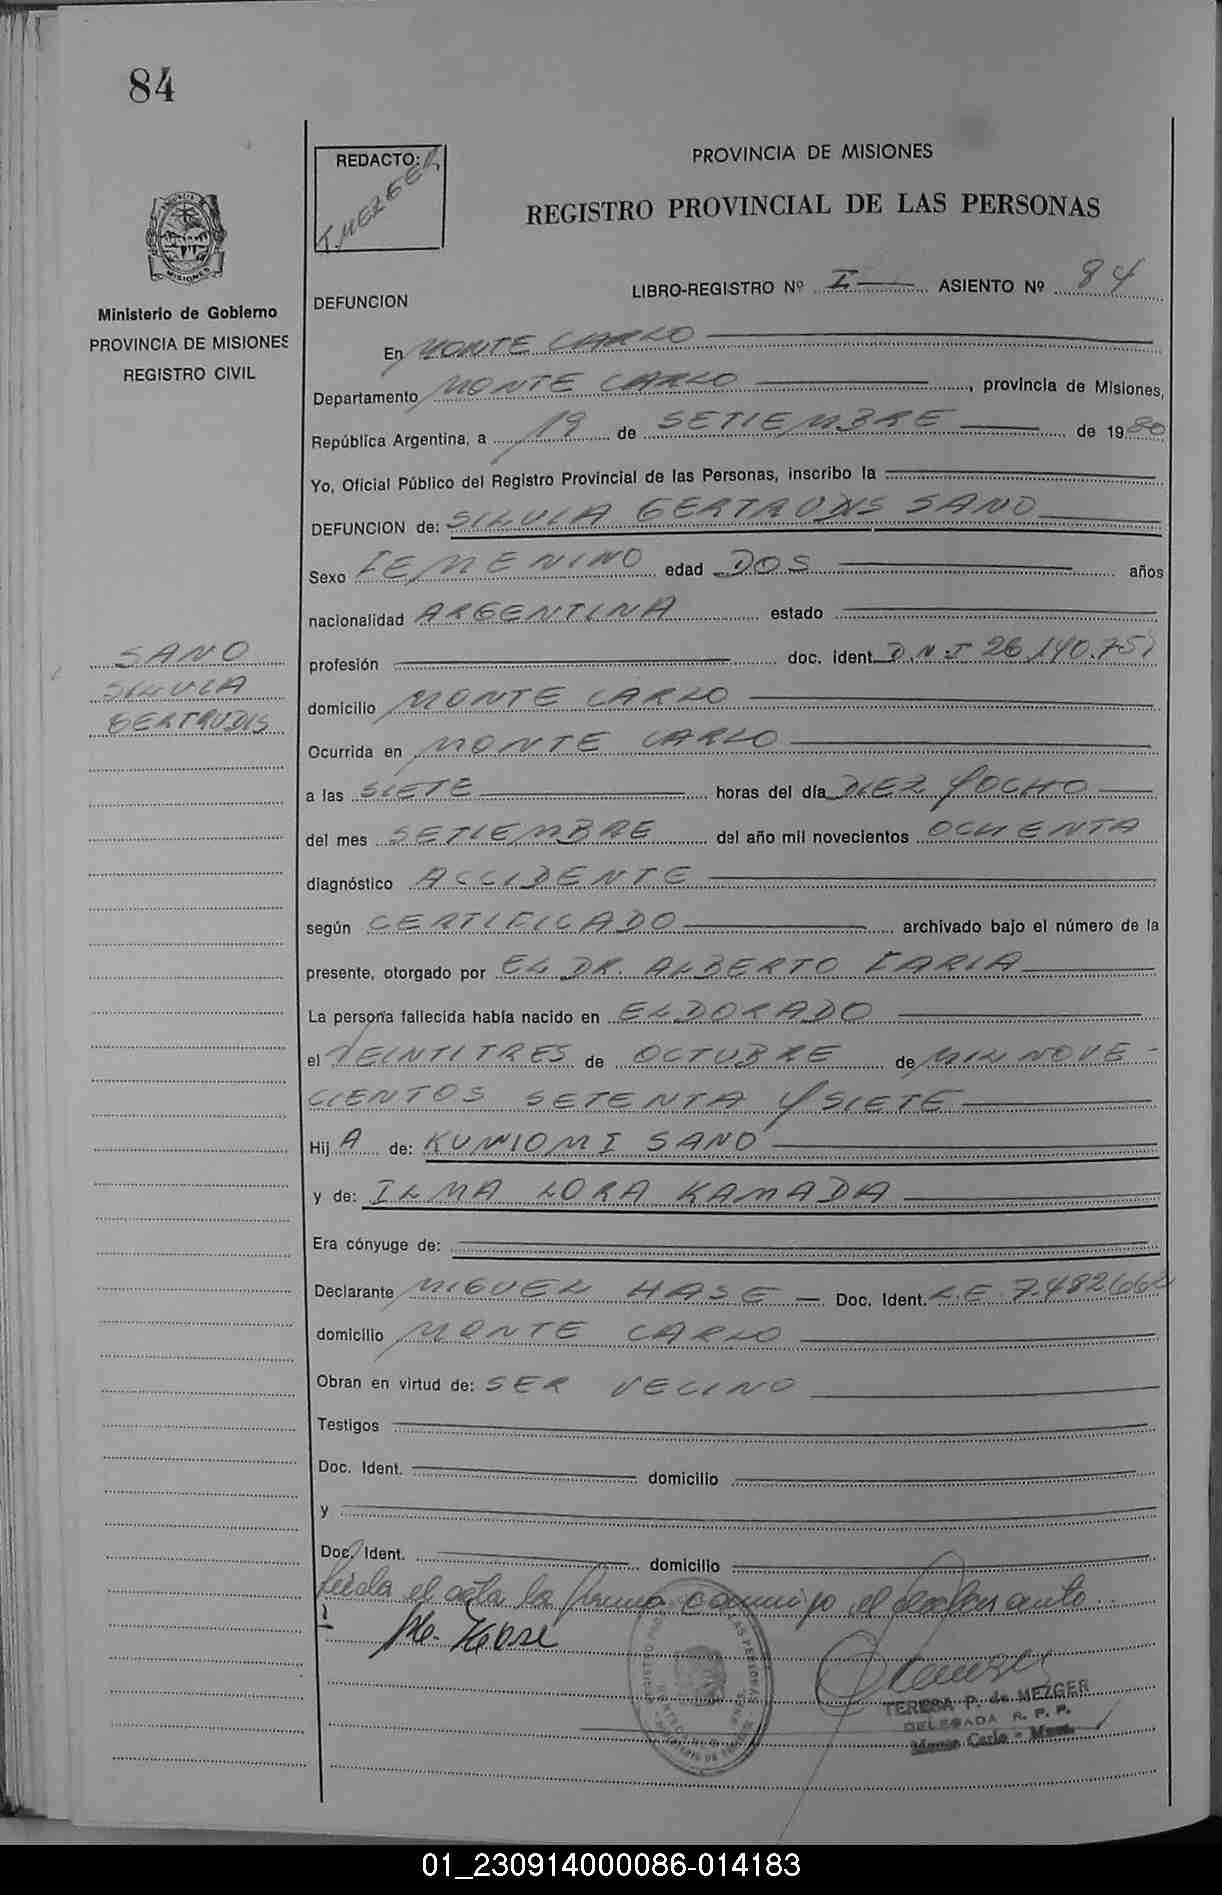 84
REDACTO:
T. MEZGER
PROVINCIA DE MISIONES
REGISTRO PROVINCIAL DE LAS PERSONAS
MISIONES
Ministerio de Gobierno
PROVINCIA DE MISIONES
REGISTRO CIVIL
DEFUNCION
LIBRO-REGISTRO Nº I ASIENTO Nº 84
En MONTE CARLO
Departamento MONTE CARLO, provincia de Misiones,
República Argentina, a 19 de SETIEMBRE de 1980
Yo, Oficial Público del Registro Provincial de las Personas, inscribo la
DEFUNCION de: SILVIA GERTRUDIS SANO
Sexo FEMENINO edad DOS años
nacionalidad ARGENTINA estado
SANO
SILVIA
GERTRUDIS
profesión doc. ident. D.N.I 26.140.751
domicilio MONTE CARLO
Ocurrida en MONTE CARLO
a las SIETE horas del día DIEZ Y OCHO
del mes SETIEMBRE del año mil novecientos OCHENTA
diagnóstico ACCIDENTE
según CERTIFICADO archivado bajo el número de la
presente, otorgado por EL DR. ALBERTO FARIA
La persona fallecida había nacido en ELDORADO
el VEINTITRES de OCTUBRE de MIL NOVE-
CIENTOS SETENTA Y SIETE
Hij A de: KUNIOMI SANO
y de: ILMA LORA KAMADA
Era cónyuge de:
Declarante MIGUEL HASE — Doc. Ident. L.E. 7.482.662
domicilio MONTE CARLO
Obran en virtud de: SER VECINO
Testigos
Doc. Ident. domicilio
y
Doc. Ident. domicilio
Leida el acta la firma conmigo el declarante..
M. Hase
TERESA P. de MEZGER
DELEGADA R. P. P.
Monte Carlo - Mnes.
01_230914000086-014183